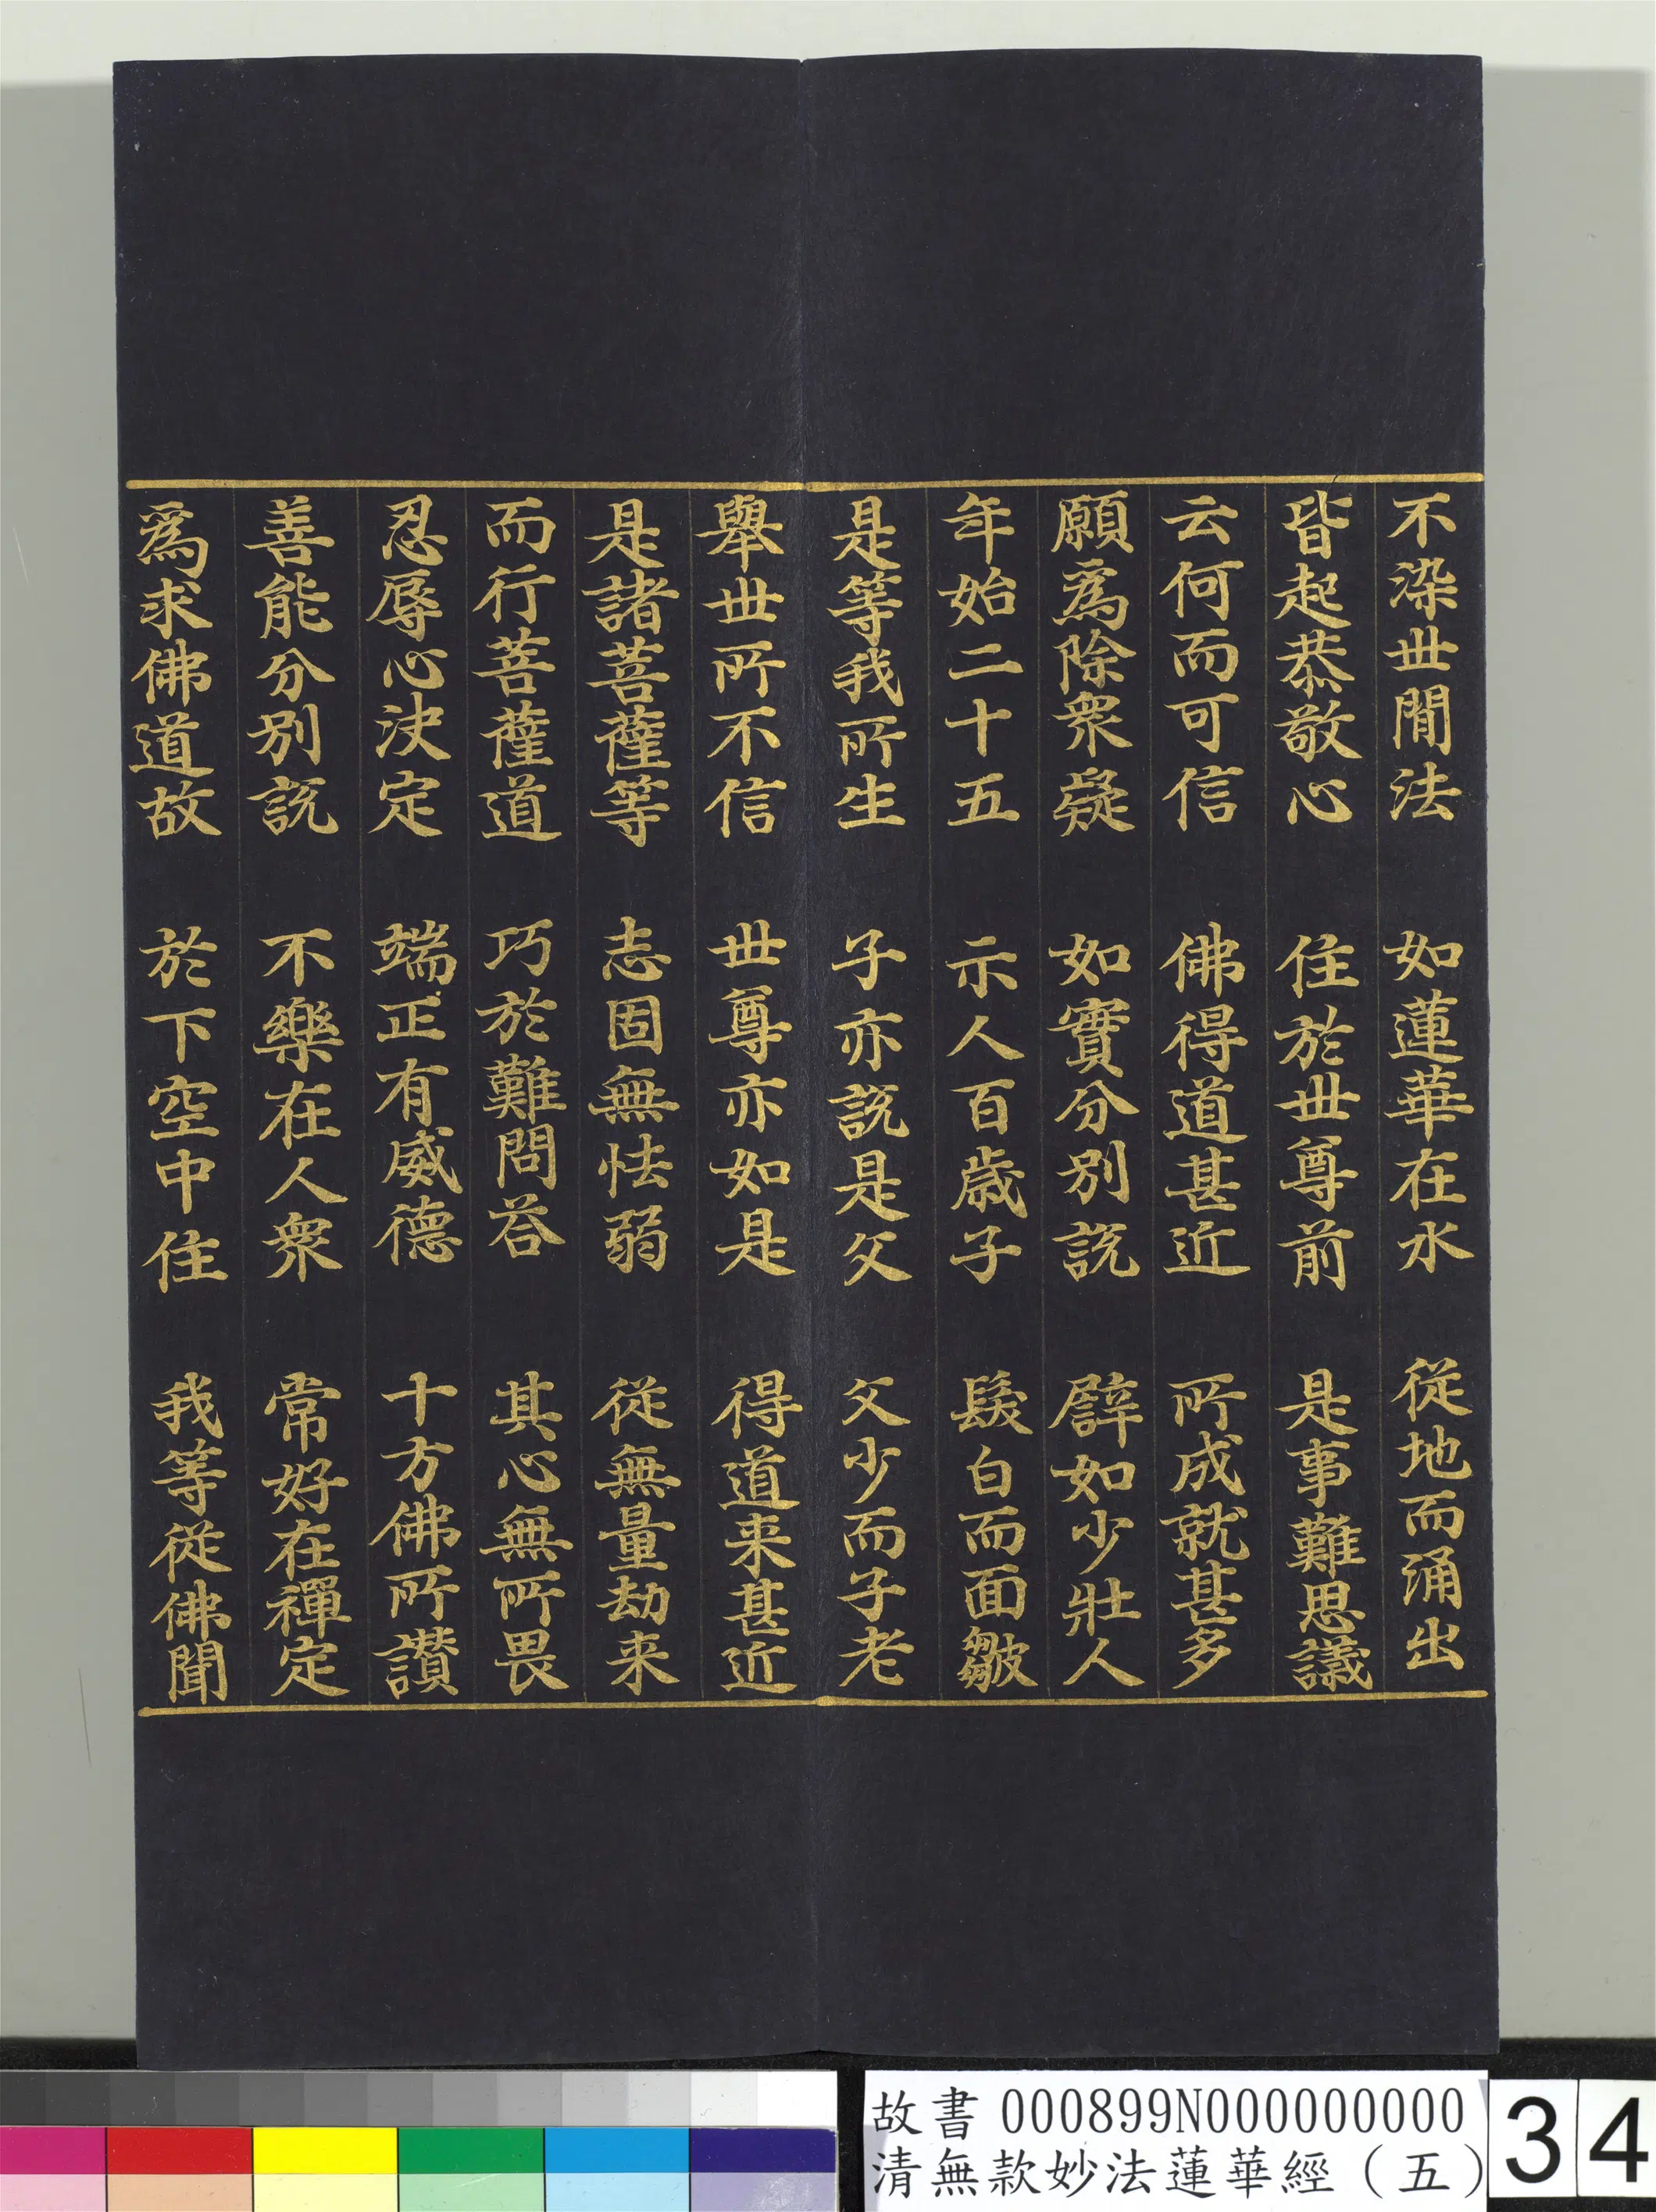 不染世閒法　如蓮華在水　從地而涌出
皆起恭敬心　住於世尊前　是事難思議
云何而可信　佛得道甚近　所成就甚多
願為除衆疑　如實分別說　譬如少壯人
年始二十五　示人百歲子　髮白而面皺
是等我所生　子亦說是父　父少而子老
舉世所不信　世尊亦如是　得道来甚近
是諸菩薩等　志固無怯弱　從無量劫来
而行菩薩道　巧於難問答　其心無所畏
忍辱心決定　端正有威德　十方佛所讚
善能分別說　不樂在人衆　常好在禪定
為求佛道故　於下空中住　我等從佛聞
故書 000899N000000000
清無款妙法蓮華經（五）
34